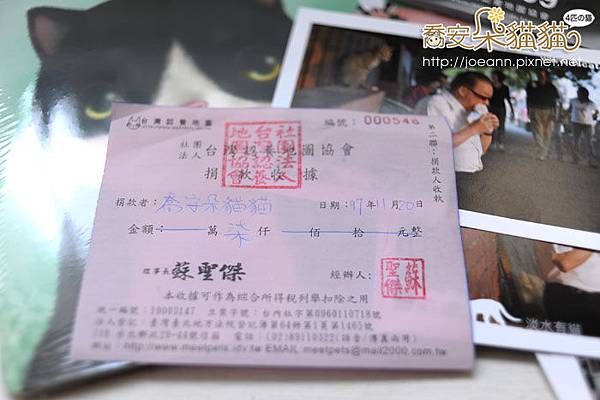 喬安朵貓貓
4匹の貓
http://joeann.pixnet.net
台灣認養地圖
編號:000546
社團法人 台灣認養地圖協會
捐款收據
社團法人台灣認養地圖協會
第二聯:捐款人收執
捐款者:喬安朵貓貓 日期:97年11月20日
金額: 萬 柒 仟 佰 拾 元整
理事長 蘇聖傑 經辦人: 蘇聖傑
本收據可作為綜合所得稅列舉扣除之用
統一編號:10003147 立案字號:台內社字第0960110718號
法人登記:臺灣臺北地方法院登記簿第64冊第1頁第1465號
EMAIL:meetpets@mail2000.com.tw
淡水有貓